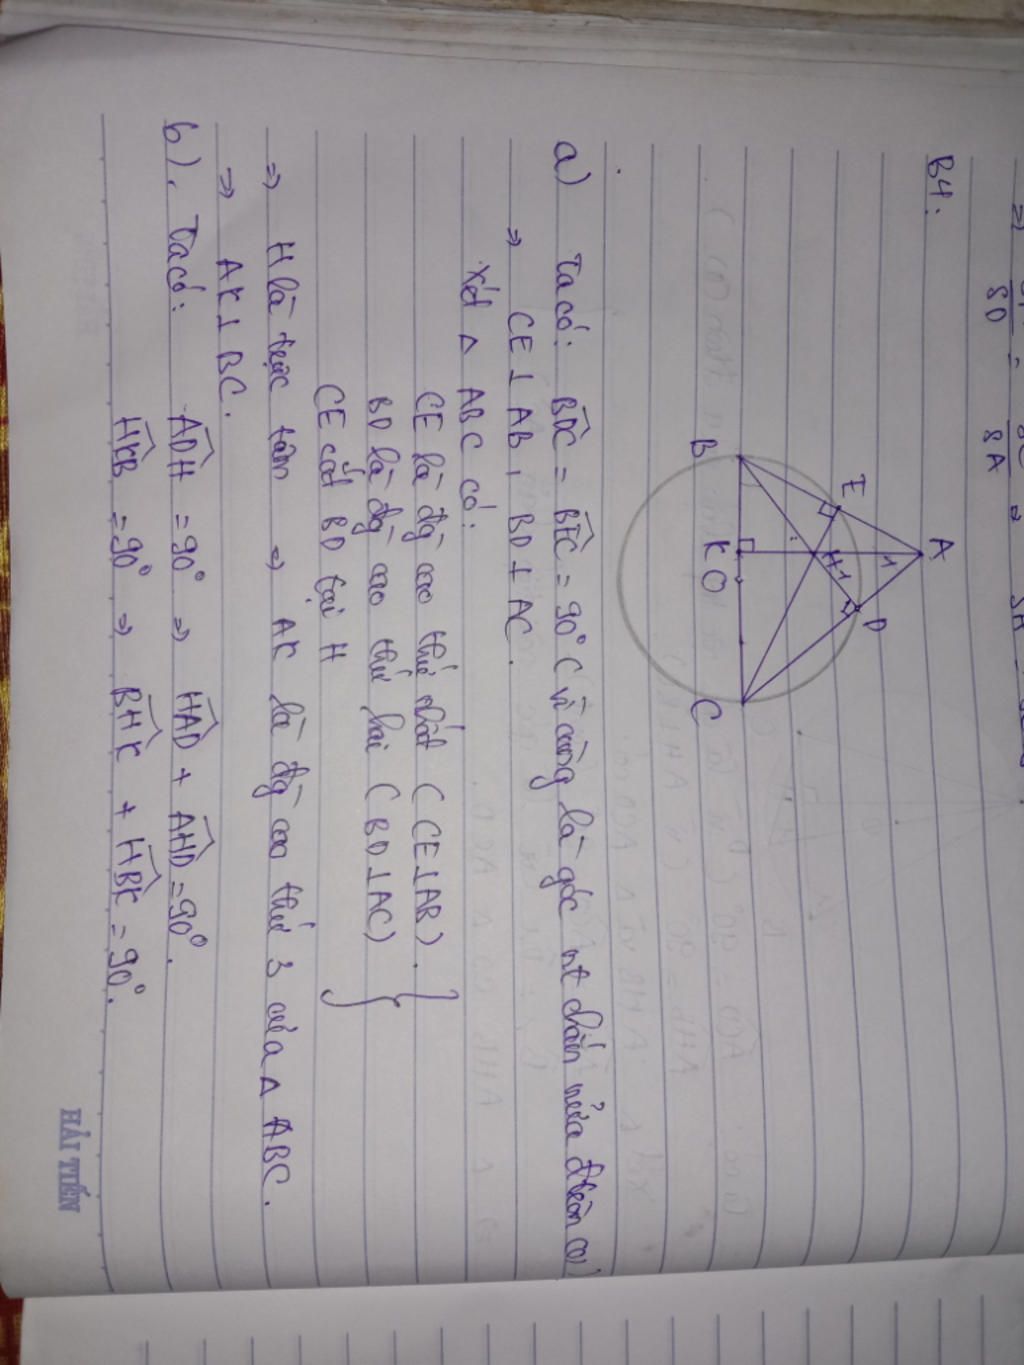 B4:
A
E
D
H
1
1
B
K
O
C
a) Ta có: BDC = BEC = 90° (vì cùng là góc nt chắn nửa đtròn (O)
⇒ CE ⊥ AB, BD ⊥ AC.
Xét Δ ABC có:
CE là đg cao thứ nhất (CE ⊥ AB).
BD là đg cao thứ hai (BD ⊥ AC)
CE cắt BD tại H
⇒ H là trực tâm ⇒ AK là đg cao thứ 3 của Δ ABC.
⇒ AK ⊥ BC.
b). Ta có: ADH = 90° ⇒ HAD + AHD = 90°.
HKB = 90° ⇒ BHK + HBK = 90°.
HẢI TIẾN